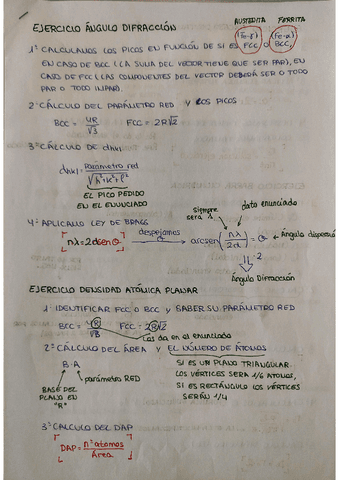 EJERCICIO ÁNGULO DIFRACCIÓN
AUSTENITA FERRITA
(Fe-γ) (Fe-α)
1º CALCULAMOS LOS PICOS EN FUNCIÓN DE SI ES FCC O BCC,
EN CASO DE BCC (LA SUMA DEL VECTOR TIENE QUE SER PAR), EN
CASO DE FCC (LAS COMPONENTES DEL VECTOR DEBERÁ SER O TODO
PAR O TODO IMPAR).
2º CÁLCULO DEL PARÁMETRO RED Y LOS PICOS
BCC = 4R/√3 FCC = 2R√2
3º CÁLCULO DE dhkl
dhkl = parámetro red/√h²+k²+l²
EL PICO PEDIDO
EN EL ENUNCIADO
4º APLICAMOS LEY DE BRAGG
siempre
será 1
dato enunciado
nλ = 2d senθ despejamos arcsen(nλ/2d) = θ Ángulo
2
Ángulo Difracción
EJERCICIO DENSIDAD ATÓMICA PLANAR
1º IDENTIFICAR FCC O BCC Y SABER SU PARÁMETRO RED
BCC = 4R/√3 FCC = 2R√2
Las da en el enunciado
2º CÁLCULO DEL ÁREA Y EL NÚMERO DE ÁTOMOS
B·A
parámetro RED
BASE DEL
PLANO EN
"R"
SI ES UN PLANO TRIANGULAR
LOS VÉRTICES SERÁ 1/6 ATOMOS,
SI ES RECTÁNGULO LOS VÉRTICES
SERÁN 1/4
3º CÁLCULO DEL DAP
DAP = nº atomos/Área